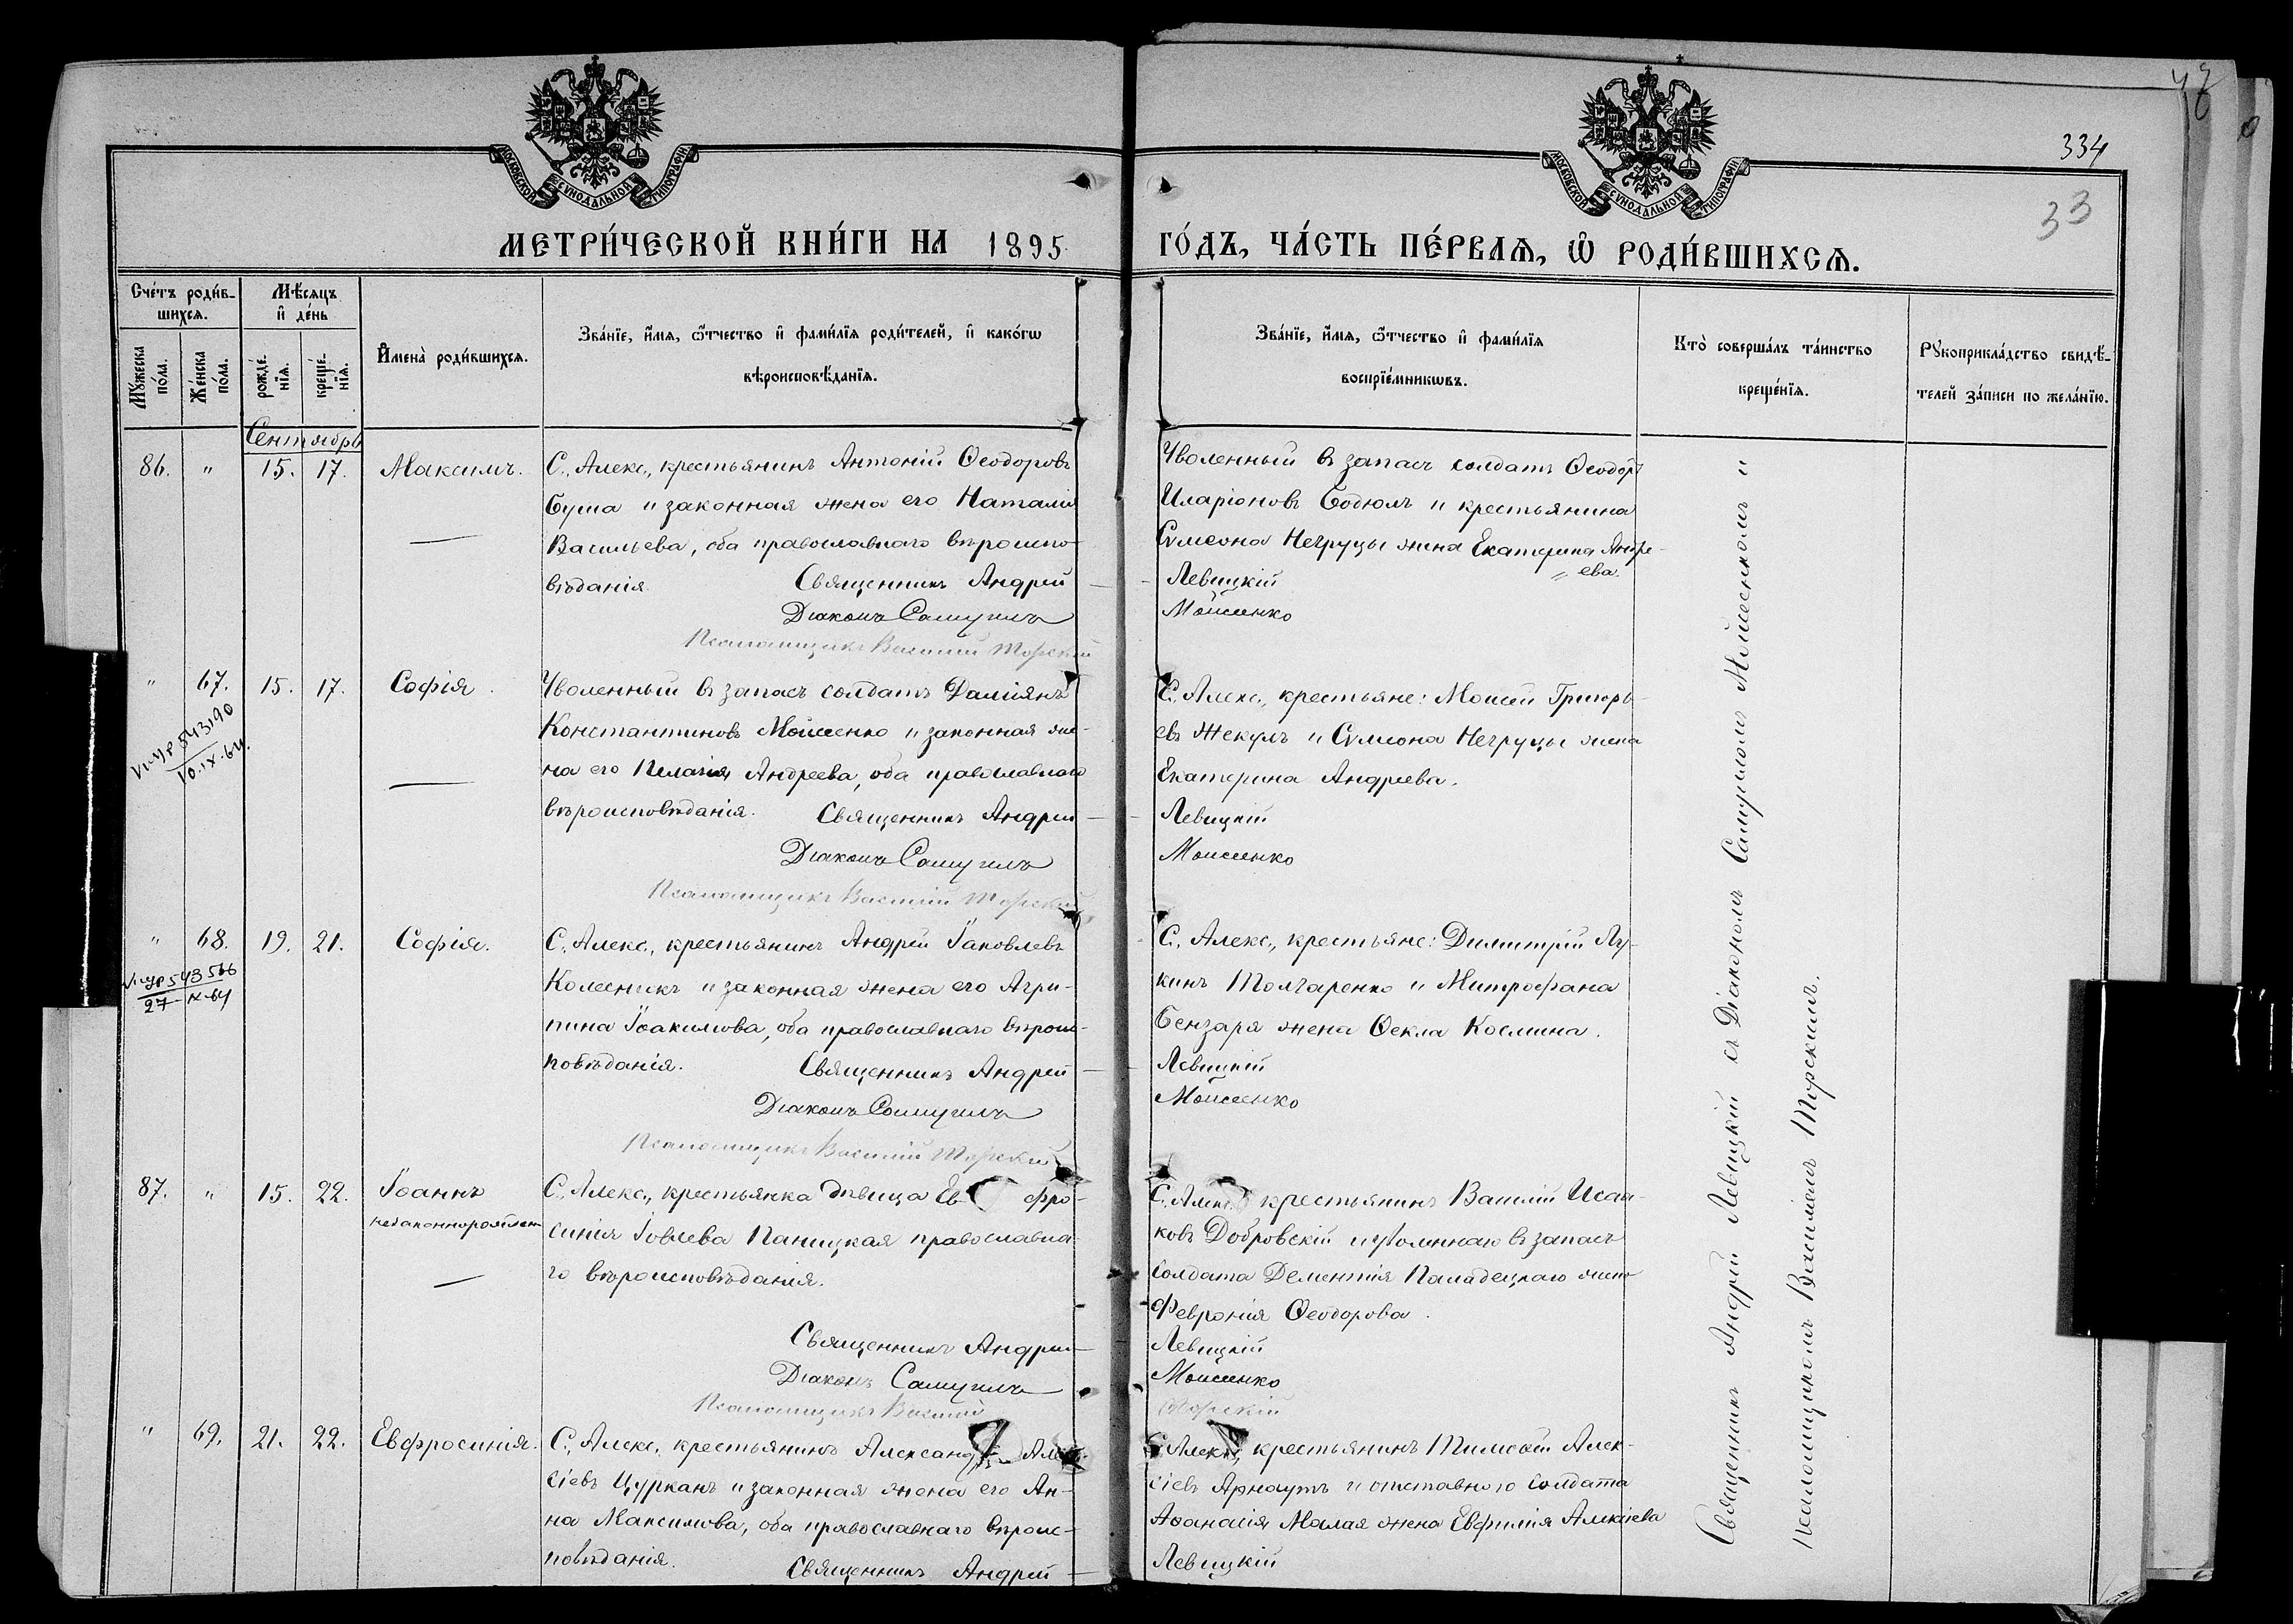 48
334
33
МОСКОВСКОЙ СѴНОДАЛЬНОЙ ТИПОГРАФІИ
МОСКОВСКОЙ СѴНОДАЛЬНОЙ ТИПОГРАФІИ
МЕТРИ́ЧЕСКОЙ КНИ́ГИ НА 1895 ГО́ДЪ, ЧА́СТЬ ПЕ́РВАѦ, Ѡ РОДИ́ВШИХСѦ.
Сче́тъ роди́в-
шихсѧ.
Мѣ́сѧцъ
и҆ де́нь
Мꙋ́жеска
по́ла.
Же́нска
по́ла.
рожде́-
нїѧ.
креще́-
нїѧ.
И҆мена̀ роди́вшихсѧ.
Зва́нїе, и҆́мѧ, ѻ҆́тчество и҆ фами́лїѧ роди́телей, и҆ како́гѡ
вѣроисповѣ́данїѧ.
Зва́нїе, и҆́мѧ, ѻ҆́тчество и҆ фами́лїѧ
воспрїе́мникѡвъ.
Кто̀ соверша́лъ та́инство
креще́нїѧ.
Рꙋкоприкла́дство свидѣ́-
телей за́писи по жела́нїю.
Сентябрь
86. " 15. 17. Максимъ.
С. Алекс., крестьянинъ Антоній Ѳеодоровъ
Буша и законная жена его Наталія
Васильева, оба православнаго вѣроиспо-
вѣданія. Священникъ Андрей
Діаконъ Самуилъ
Псаломщикъ Василій Торскій
Уволенный въ запасъ солдатъ Ѳеодоръ
Иларіоновъ Бодюлъ и крестьянина
Сѵмеона Негруцы жена Екатерина Андре-
ева.
Левицкій
Мойсеенко
" 67. 15. 17. Софія.
543190
10.IX.64.
Уволенный въ запасъ солдатъ Даміянъ
Константиновъ Мойсеенко и законная же-
на его Пелагія Андреева, оба православнаго
вѣроисповѣданія. Священникъ Андрей
Діаконъ Самуилъ
Псаломщикъ Василій Торскій
С. Алекс., крестьяне: Моисей Григорь-
евъ Жекулъ и Сѵмеона Негруцы жена
Екатерина Андреева.
Левицкій
Мойсеенко
" 68. 19. 21. Софія.
С. Алекс., крестьянинъ Андрей Іаковлевъ
Колесникъ и законная жена его Агри-
пина Іоакимова, оба православнаго вѣроис-
повѣданія. Священникъ Андрей
Діаконъ Самуилъ
Псаломщикъ Василій Торскій
С. Алекс., крестьяне: Димитрій Лу-
кинъ Толчаренко и Митрофана
Бензаря жена Ѳекла Космина.
Левицкій
Мойсеенко
87. " 15. 22. Іоаннъ
незаконнорожден
С. Алекс., крестьянка дѣвица Ев фро-
синія Іовлева Паницкая православна-
го вѣроисповѣданія.
Священникъ Андрей
Діаконъ Самуилъ
Псаломщикъ Василій
С. Алекс. крестьянинъ Василій Исаа-
ковъ Добровскій и уволеннаго въ запасъ
солдата Дементія Паладецкаго жена
Февронія Ѳеодорова.
Левицкій
Мойсеенко
Торскій
" 69. 21. 22. Евфросинія.
С. Алекс. крестьянинъ Александръ Алек-
сіевъ Цурканъ и законная жена его Ан-
на Максимова, оба православнаго вѣроис-
повѣданія. Священникъ Андрей
С. Алекс., крестьянинъ Тимоѳей Алек-
сіевъ Арнаутъ и отставного солдата
Аѳанасія Малая жена Евфимія Алексіева
Левицкій
Священникъ Андрей Левицкій съ Діакономъ Самуиломъ Мойсеенкомъ и
псаломщикомъ Василіемъ Торскимъ.